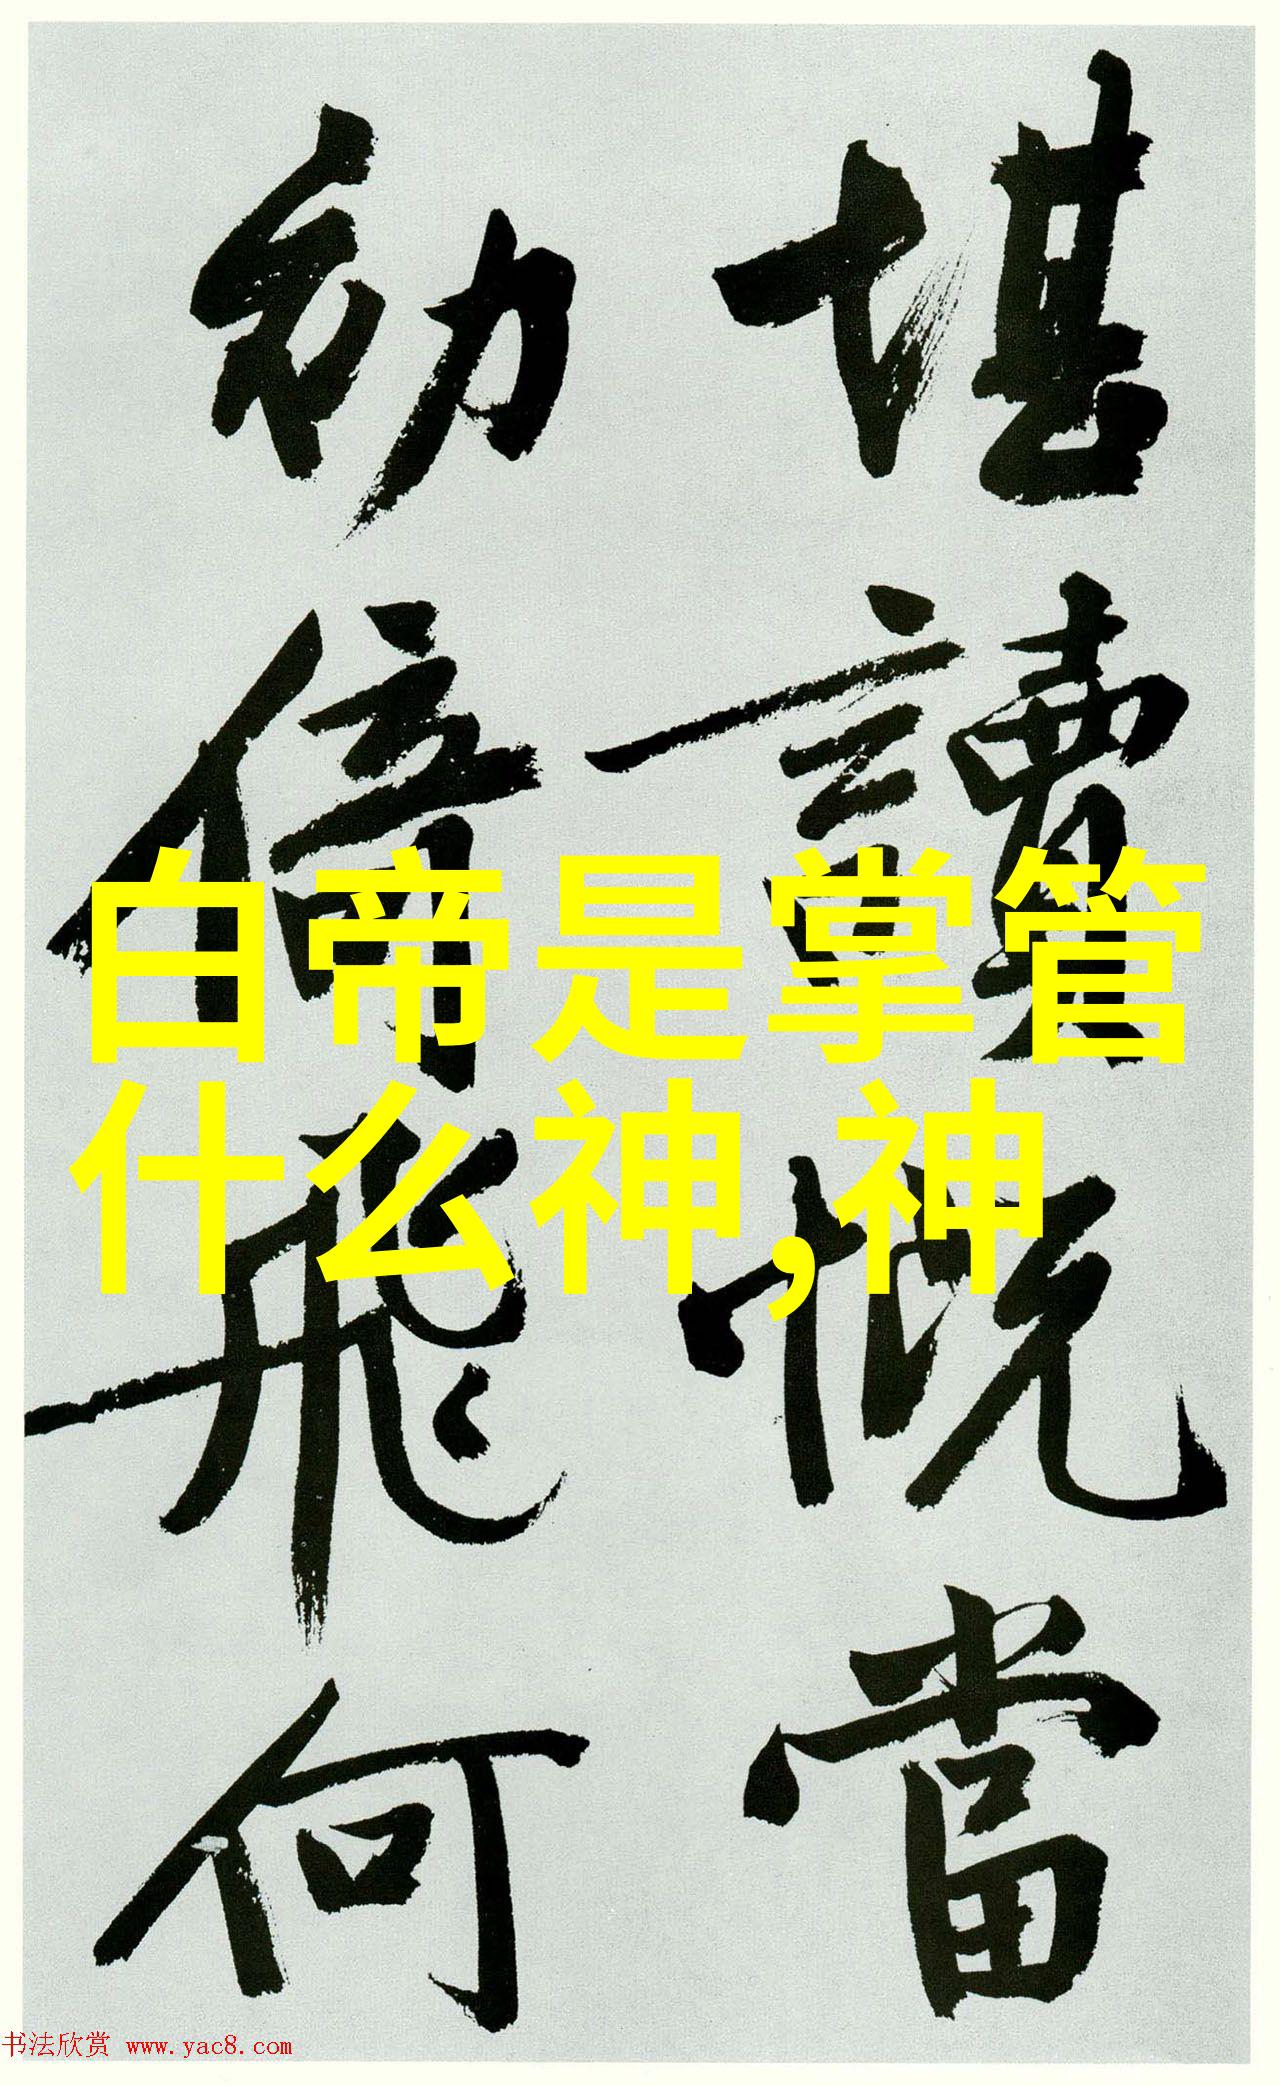 堪讀慨當
幼倍飛何
白帝是掌管
什么神,神
书法欣赏 www.yac8.com